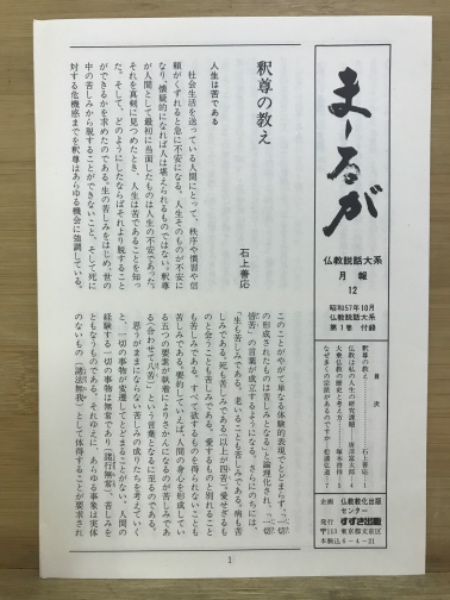 まーるが
仏教説話大系
月報
12
昭和57年10月
仏教説話大系
第1巻 付録
目次
釈尊の教え……石上善応…1
仏教は私の人生の研究課題……唐澤富太郎…4
大乗仏教の歴史と考え方……塚本啓祥…5
なぜ多くの宗派があるのですか…松濤弘道…7
企画 仏教教化出版センター
発行 すずき出版
〒113 東京都文京区
本駒込6-4-21
釈尊の教え
石上善応
人生は苦である
社会生活を送っている人間にとって、秩序や慣習や信
頼がくずれると急に不安になる。人生そのものが不安に
なり、懐疑的になれば人は堪えられるものではない。釈尊
が人間として最初に当面したものは人生の不安であった。
それを真剣に見つめたとき、人生は苦であることを知っ
た。そして、どのようにしたならばそれより脱すること
ができるかを求めたのである。生の苦しみをはじめ、世の
中の苦しみから脱することができないこと、そして死に
対する危機感までを釈尊はあらゆる機会に強調している。
このことがやがて単なる体験的表現でとどまらず、「一切
の形成されたものは苦しみとなる」と論理化され、「一切
皆苦」の言葉が成立するようになる。さらにのちには、
「生も苦しみである。老いることも苦しみである。病も苦
しみである。死も苦しみである(以上が四苦)。愛せざるも
のと会うことも苦しみである。愛するものと別れること
も苦しみである。すべて欲するものを得られないことも
苦しみである。要約していえば、人間の身心を形成してい
る五つの要素が執着によりさかんになるのが苦しみであ
る(合わせて八苦)」という言葉となるに至るのである。
思うがままにならない苦しみの成りたちを考えていく
と、一切の事物が変遷してとどまることがない、人間の
経験する一切の事物は無常であり(諸行無常)、苦しみを
ともなうものである。それゆえに、あらゆる事象は実体
のないもの(諸法無我)として体得することが要求され
1